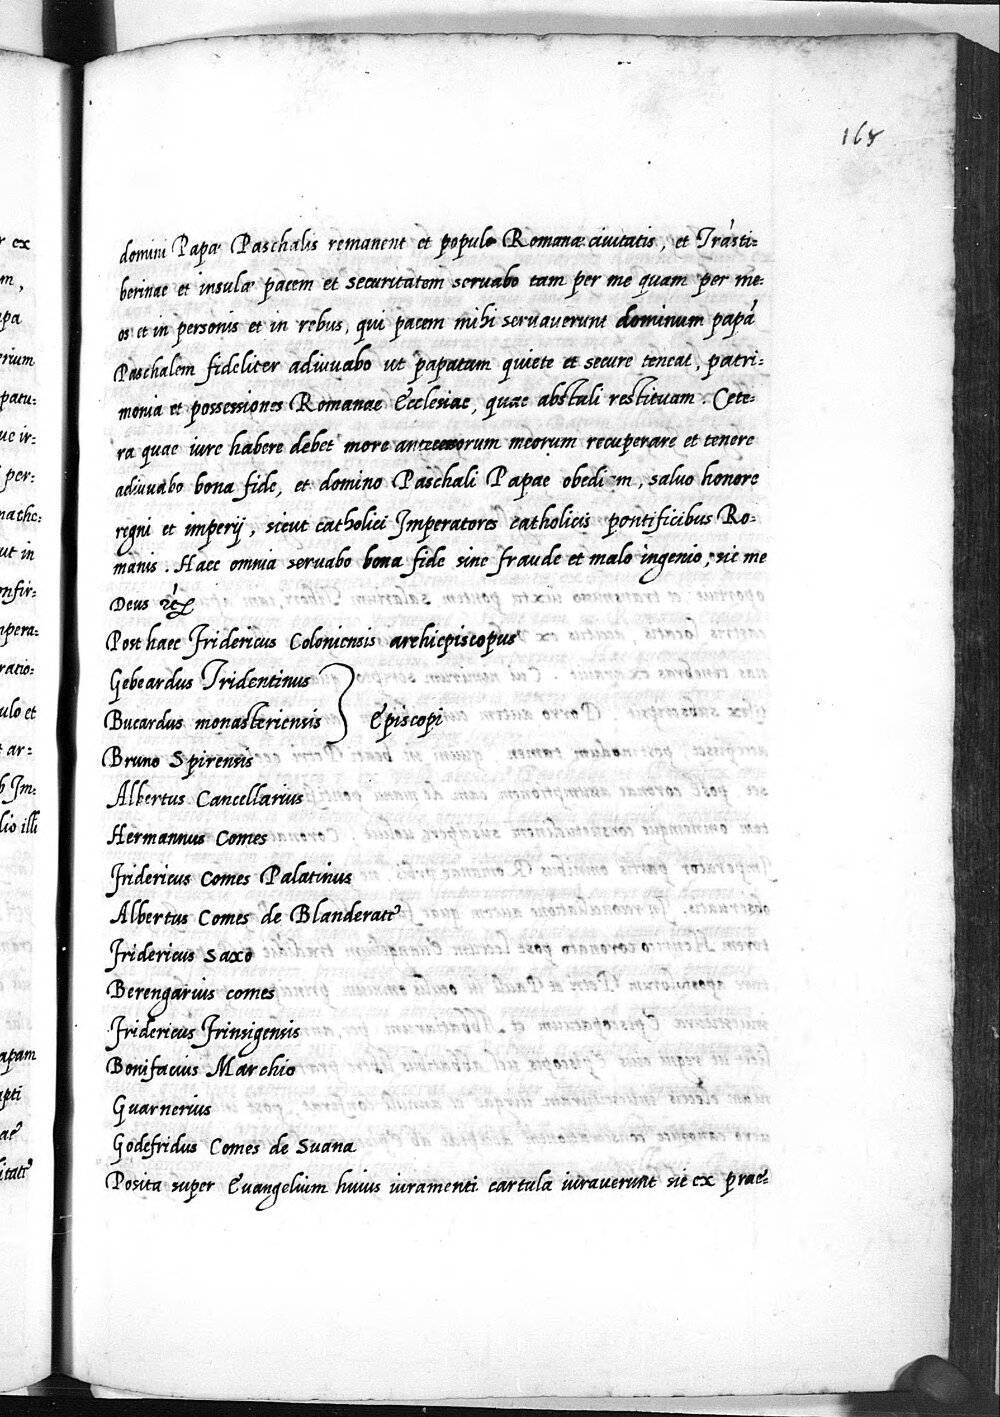 168
domini Papa Paschalis remanent et populo Romanae civitatis, et Trásti=
berinae et insulæ pacem et securitatem servabo tam per me quam per me:
os et in personis et in rebus, qui pacem mihi servaverunt dominum papā
Paschalem fideliter adiuuabo ut papatum quiete et secure teneat, patri:
monia et possessiones Romanae Ecclesiae, quae abstuli restituam. Cete=
ra quae iure habere debet more antecessorum meorum recuperare et tenere
adiuuabo bona fide, et domino Paschali Papae obediam, saluo honore
regni et imperij, sicut catholici Imperatores catholicis pontificibus Ro=
manis. Haec omnia servabo bona fide sine fraude et malo ingenio, sic me
Deus etc
Post haec Fridericus Coloniensis archiepiscopus
Gebeardus Tridentinus
Bucardus monasteriensis } Episcopi
Bruno Spirensis
Albertus Cancellarius
Hermannus Comes
Fridericus Comes Palatinus
Albertus Comes de Blanderate
Fridericus Saxo
Berengarius comes
Fridericus Frinsigensis
Bonifacius Marchio
Guarnerius
Godefridus Comes de Suana
Posita super Evangelium huius iuramenti cartula iuraverunt sic ex prae=